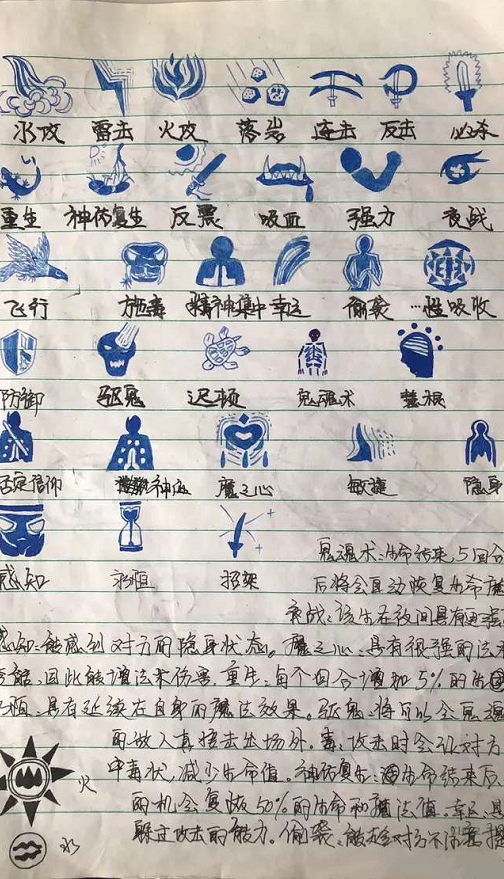 水攻 雷击 火攻 落岩 连击 反击 必杀
重生 神佑复生 反震 吸血 强力 夜战
飞行 施毒 精神集中 幸运 偷袭 性吸收
防御 驱鬼 迟顿 鬼魂术 慧根
否定信仰 神迹 魔之心 敏捷 隐身
感知 永恒 招架
鬼魂术:生命结束,5回合
后将会自动恢复生命
夜战:该生在夜间具有更强
感知:能感到对方的隐身状态。魔之心:具有很强的法术
因此能 法术伤害。重生:每个回合增加5%的
恒:具有延续在自身的魔法效果。驱鬼:将可以会鬼魂
的敌人直接击出场外。毒:攻击时会让对方
中毒状,减少生命值。神佑复生:当生命结束后
火
的机会复恢50%的生命和魔法值。幸运:具
躲过攻击的能力。偷袭:
水